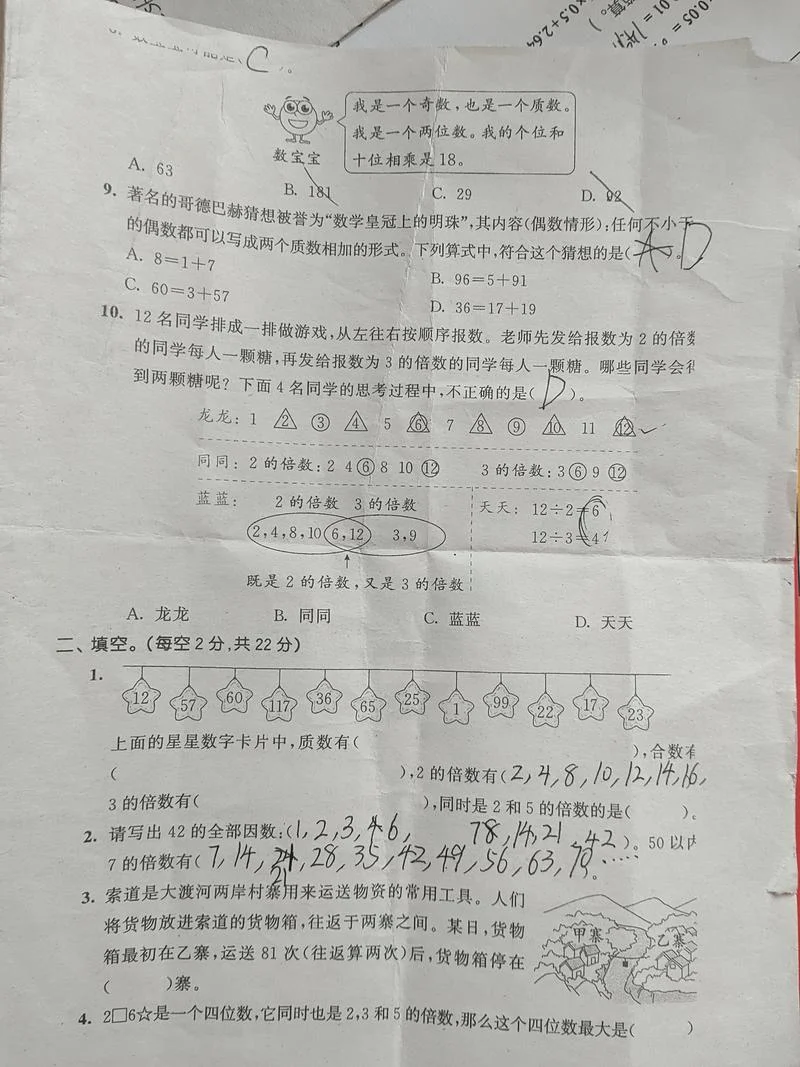 .05=
.01=
×0.5+2.64
算。）
C )。
我是一个奇数,也是一个质数。
我是一个两位数。我的个位和
十位相乘是18。
数宝宝
A. 63
B. 181
C. 29
D. 92
9. 著名的哥德巴赫猜想被誉为“数学皇冠上的明珠”,其内容(偶数情形):任何不小于
的偶数都可以写成两个质数相加的形式。下列算式中,符合这个猜想的是( A D )。
A. 8=1+7
B. 96=5+91
C. 60=3+57
D. 36=17+19
10. 12名同学排成一排做游戏,从左往右按顺序报数。老师先发给报数为2的倍数
的同学每人一颗糖,再发给报数为3的倍数的同学每人一颗糖。哪些同学会得
到两颗糖呢? 下面4名同学的思考过程中,不正确的是( D )。
龙龙: 1 2 3 4 5 6 7 8 9 10 11 12
同同: 2的倍数: 2 4 6 8 10 12 3的倍数: 3 6 9 12
蓝蓝: 2的倍数 3的倍数
2,4,8,10 6,12 3,9
既是2的倍数,又是3的倍数
天天: 12÷2=6
12÷3=4
A. 龙龙 B. 同同 C. 蓝蓝 D. 天天
二、填空。(每空2分,共22分)
1.
12 57 60 117 36 65 25 1 99 22 17 23
上面的星星数字卡片中,质数有( ),合数有
( ),2的倍数有( 2,4,8,10,12,14,16,
3的倍数有( ),同时是2和5的倍数的是( )。
2. 请写出42的全部因数:( 1,2,3,4 6, 7 8,14,21,42 )。50以内
7的倍数有( 7,14,21,28,35,42,49,56,63,70……
21
3. 索道是大渡河两岸村寨用来运送物资的常用工具。人们
将货物放进索道的货物箱,往返于两寨之间。某日,货物
箱最初在乙寨,运送81次(往返算两次)后,货物箱停在
( )寨。
甲寨
乙寨
4. 2□6☆是一个四位数,它同时也是2,3和5的倍数,那么这个四位数最大是( )